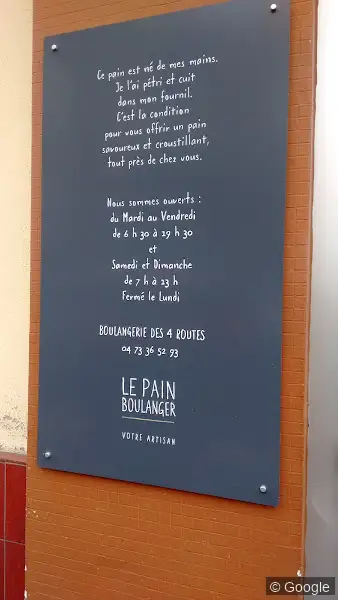 Ce pain est né de mes mains.
Je l'ai pétri et cuit
dans mon fournil.
C'est la condition
pour vous offrir un pain
savoureux et croustillant,
tout près de chez vous.
Nous sommes ouverts :
du Mardi au Vendredi
de 6 h 30 à 19 h 30
et
Samedi et Dimanche
de 7 h à 13 h
Fermé le Lundi
BOULANGERIE DES 4 ROUTES
04 73 36 52 93
LE PAIN
BOULANGER
VOTRE ARTISAN
© Google